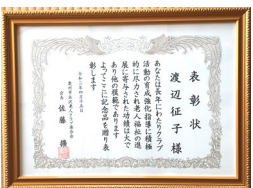 表彰状
渡辺征子様
あなたは長年にわたりクラブ
活動の育成強化指導に積極
的に尽力され老人福祉の進
展に寄与された功績は大で
あり他の模範であります
よってここに記念品を贈り表
彰します
会長 佐藤